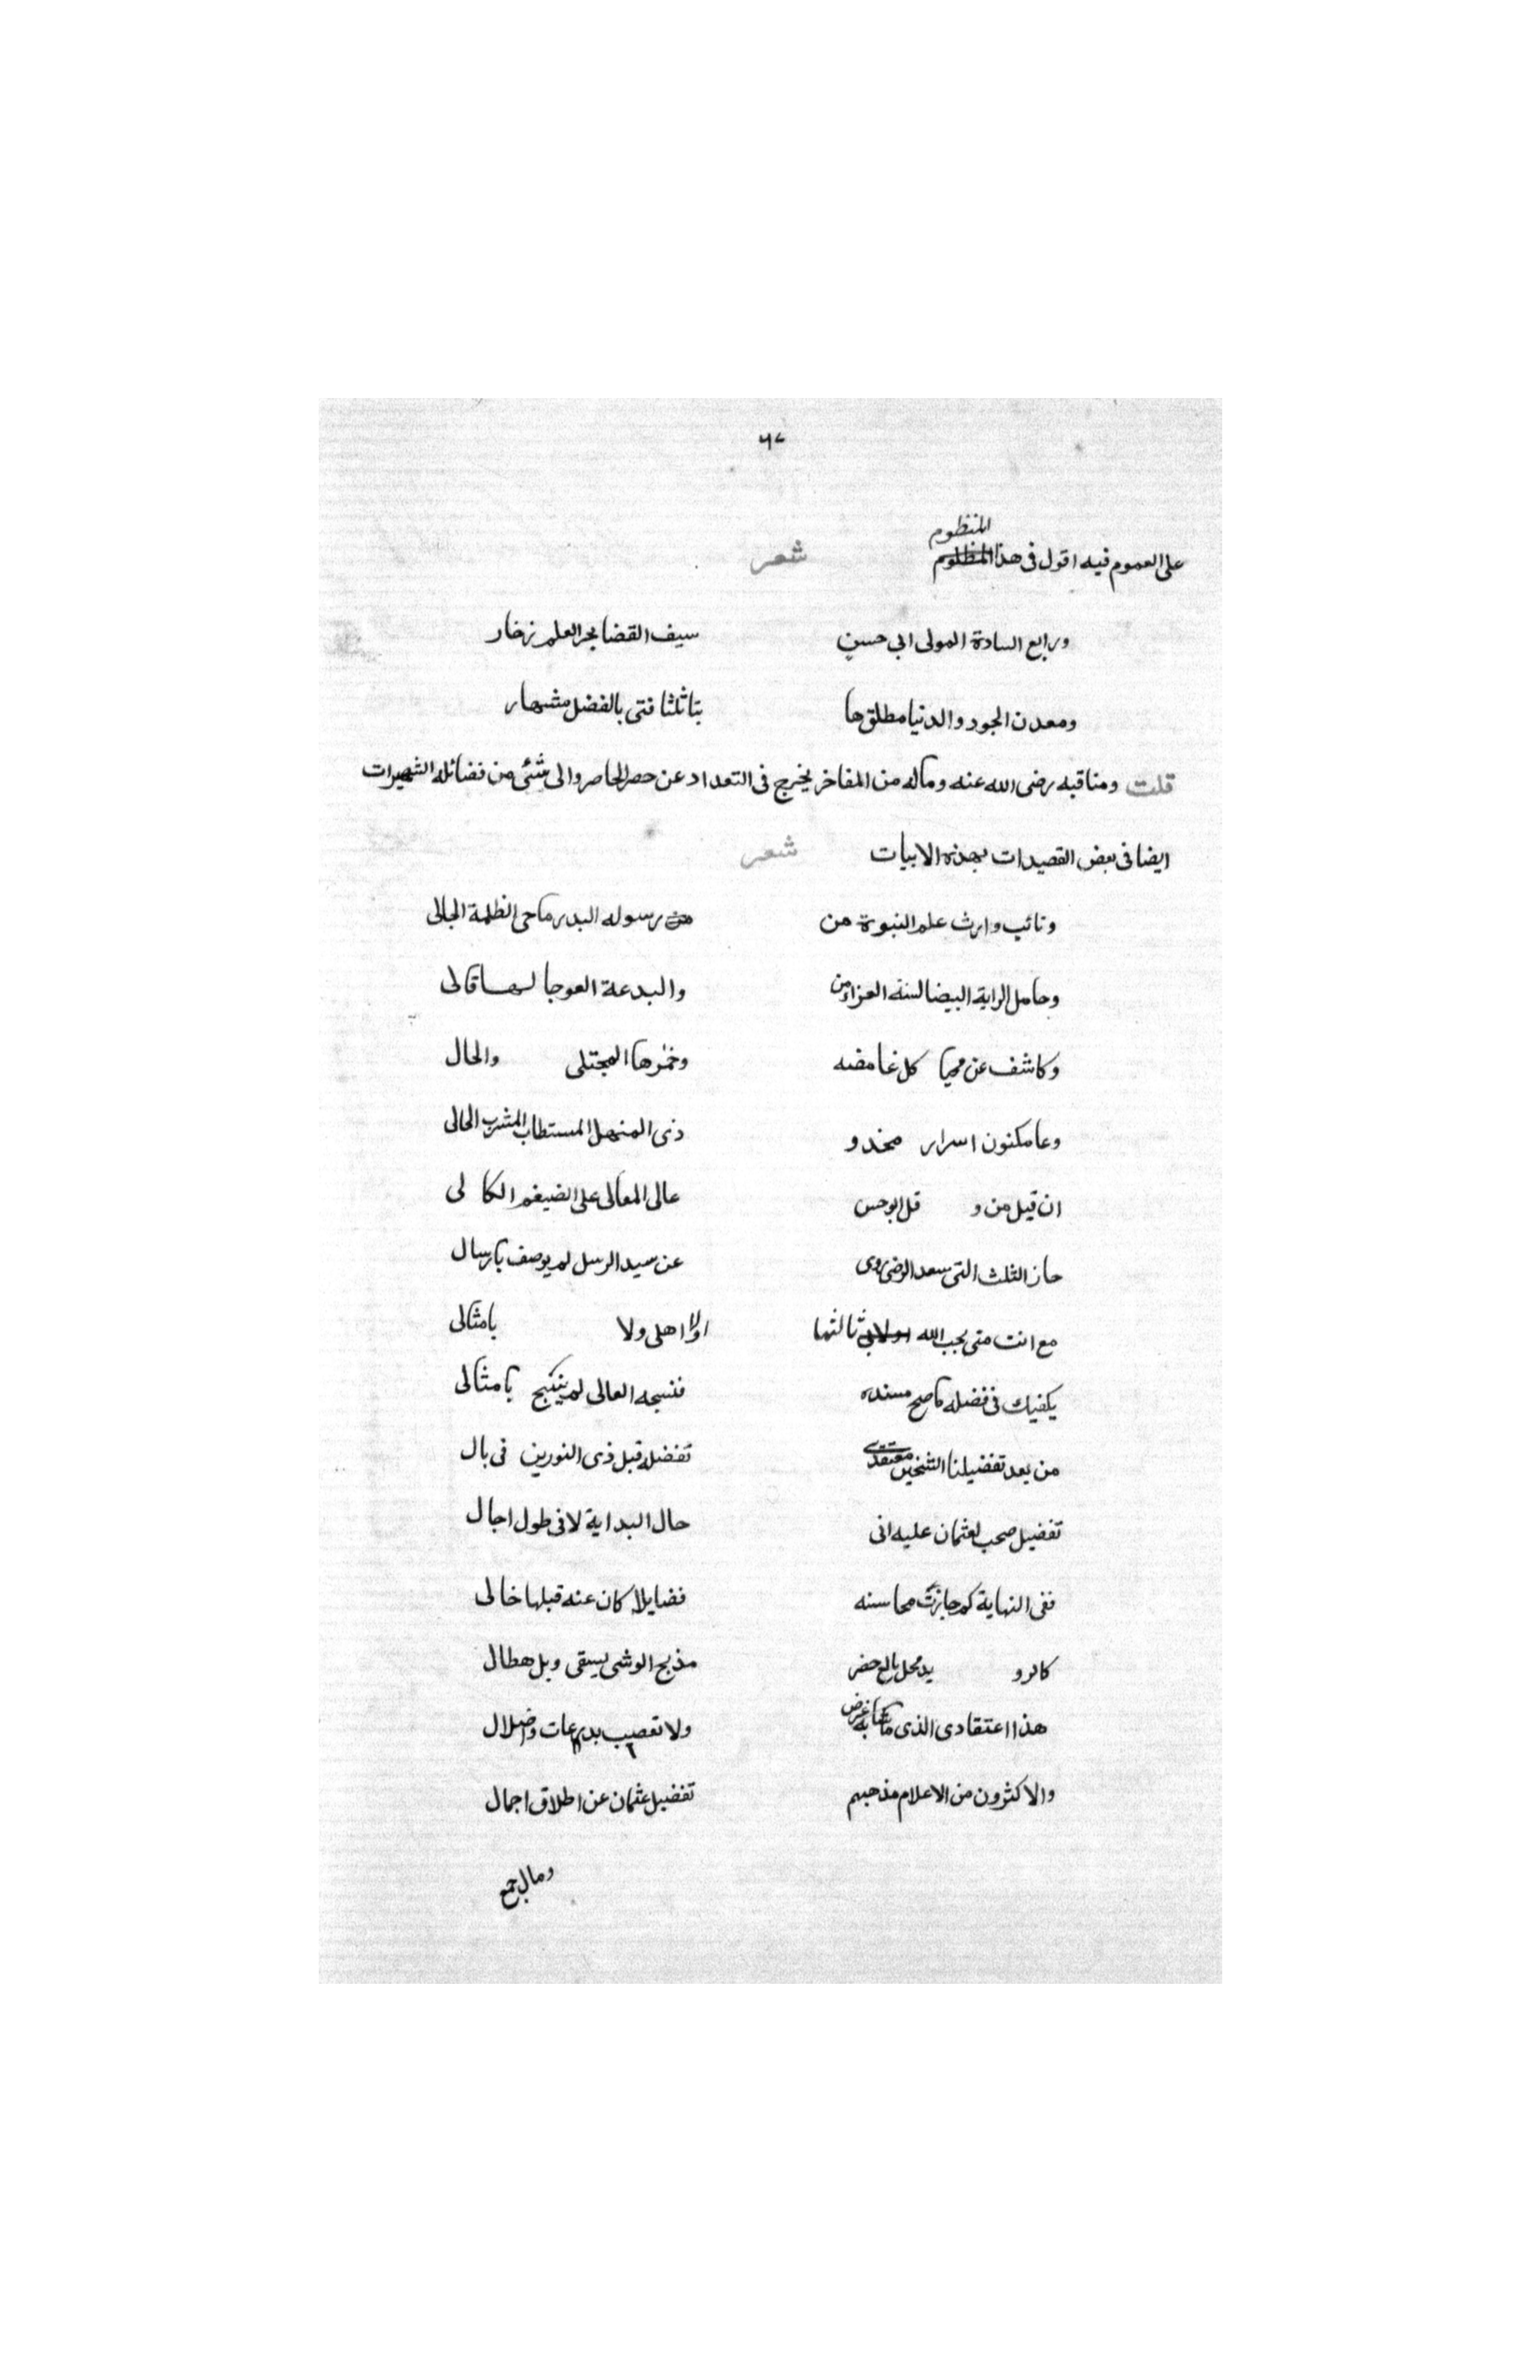 ٦٧
المنظوم
على العموم فيه اقول فى هذا المظلوم شعر
ورابع السادة المولى ابى حسن سيف القضا بحر العلم زخار
ومعدن الجود والدنيا مطلقها بتا ثلثا فتى بالفضل مشهار
قلت ومناقبه رضى الله عنه وماله من المفاخر يخرج فى التعداد عن حصر الحاصر والى شئ من فضائله الشهيرات
ايضا فى بعض القصيدات بهذه الابيات شعر
ونائب وارث علم النبوة من رسوله البدر ماحى الظلمة الجالى
وحامل الراية البيضا لسنة الغراء من والبدعة العوجا لها قالى
وكاشف عن محيا كل غامضه وخمرها المجتلى والحال
وعا مكنون اسرار مخدو ذى المنهل المستطاب المشرب الحالى
ان قيل من و قل ابو حسن عالى المعالى على الضيغم الكالى
حاز الثلث التى سعد الرضى روى عن سيد الرسل لم يوصف بارسال
مع انت منى يحب الله ثالثها اولا اهلى ولا بامثالى
يكفيك فى فضله ما صح مسنده فنسجه العالى لم ينسج بامثالى
من بعد تفضيلنا الشيخين معتقدى تفضله قبل ذى النورين فى بال
تفضيل صحب لعثمان عليه انى حال البداية لا فى طول اجال
ففى النهاية كم حازت محاسنه فضايلا كان عنه قبلها خالى
كالرو يد محل بالع حضر مذبح الوشى يسقى وبل هطال
هذا اعتقادى الذى ما شابه غرض ولا تعصيب بدعات واضلال
والاكثرون من الاعلام مذهبهم تفضيل عثمان عن اطلاق اجمال
ومال جمع